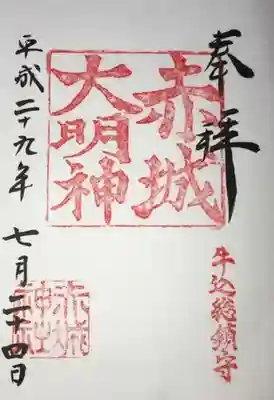 奉拝
赤城
大明神
牛込総鎮守
赤城
神社
平成二十九年 七月二十四日